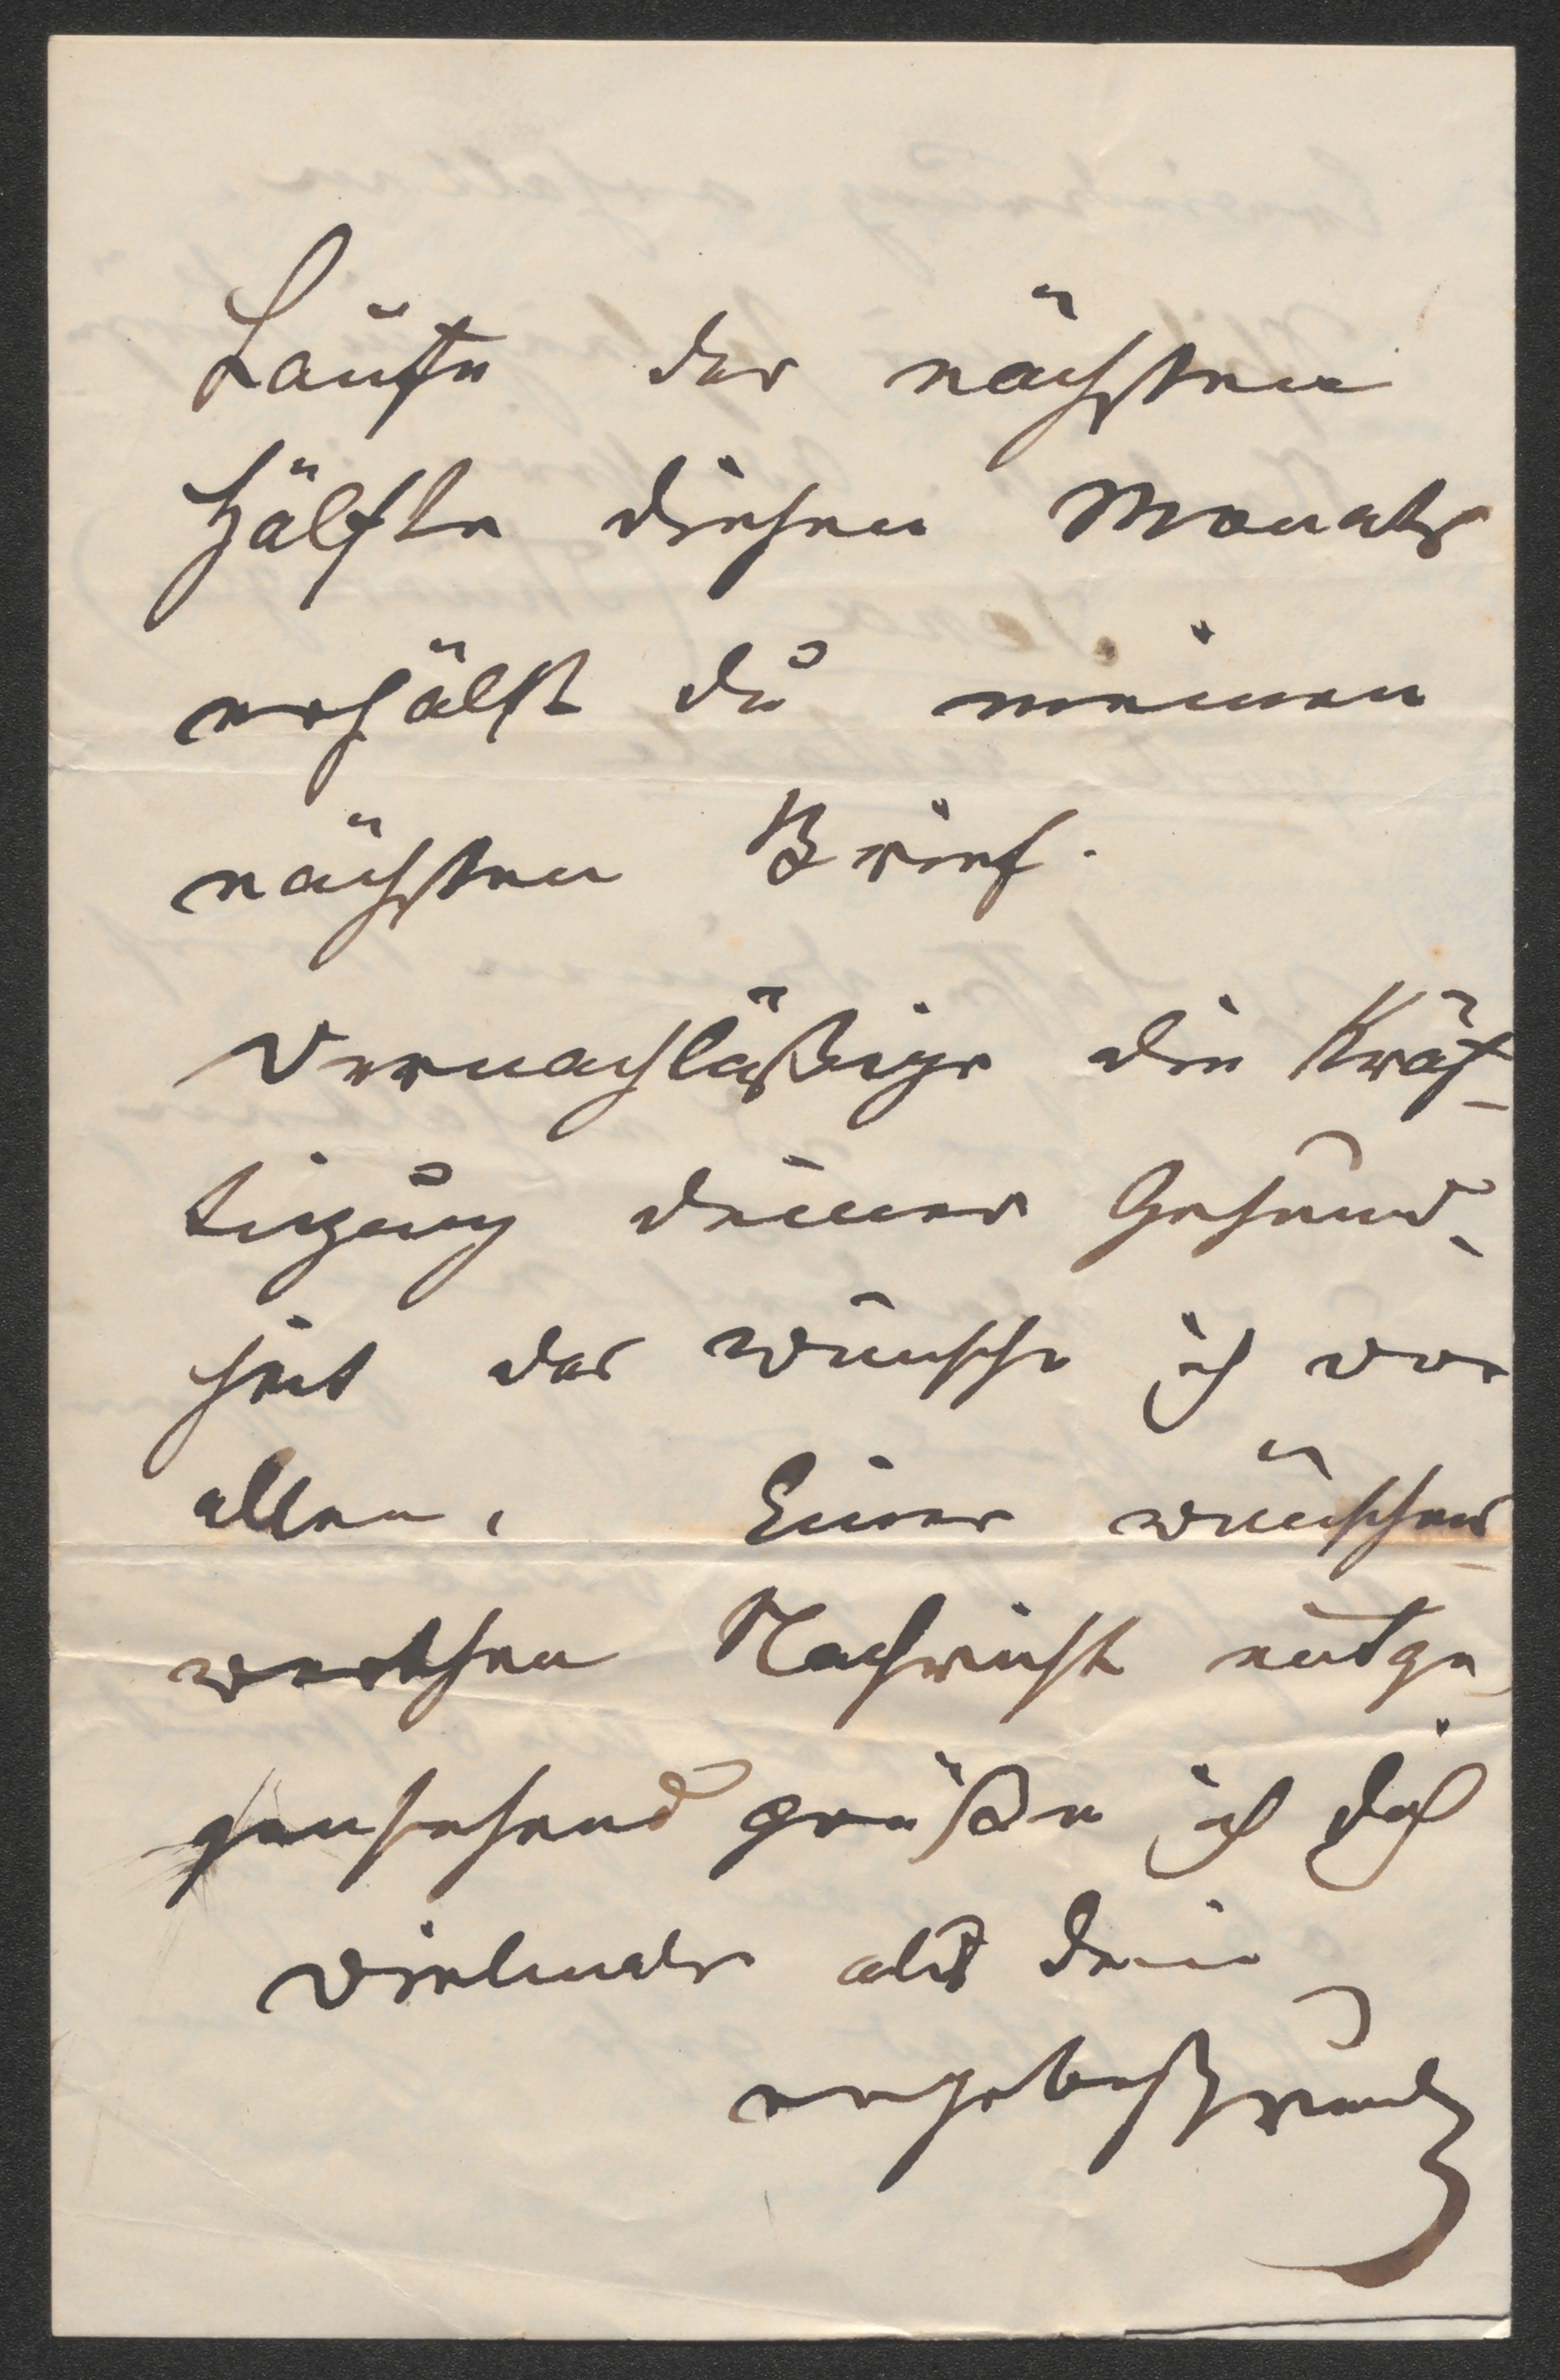 Laufe der nächsten
Hälfte diesen Monats
erhälst du meinen
nächsten Brief.
Vernachläßige die Kräf-
tigung deiner Gesund-
heit das wünsche ich vor
allen. Einer wünschens-
werthen Nachricht entge-
gensehend grüße ich dich
vielmals als dein